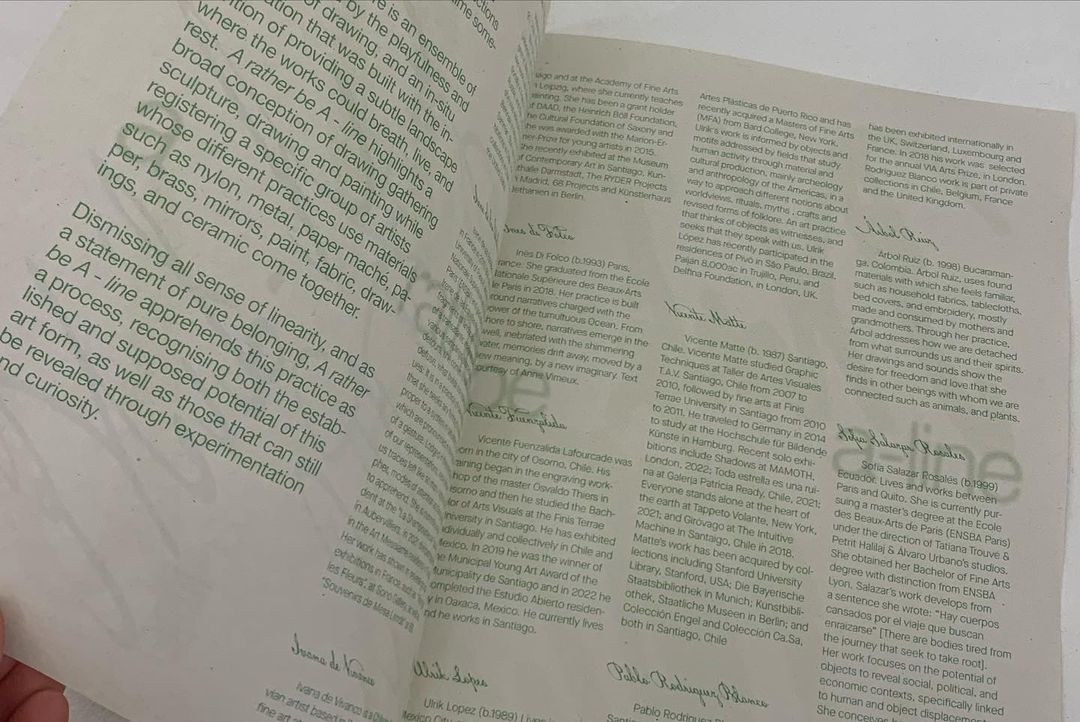 is an ensemble of
by the playfulness and
of drawing, and an in-situ
that was built with the in-
of providing a subtle landscape
where the works could breath, live, and
rest. A rather be A - line highlights a
broad conception of drawing gathering
sculpture, drawing and painting while
registering a specific group of artists
whose different practices use materials
such as nylon, metal, paper maché, pa-
per, brass, mirrors, paint, fabric, draw-
ings, and ceramic come together.
Dismissing all sense of linearity, and as
a statement of pure belonging, A rather
be A - line apprehends this practice as
a process, recognising both the estab-
lished and supposed potential of this
art form, as well as those that can still
be revealed through experimentation
and curiosity.
Ivana de Vivanco
Ivana de Vivanco is a
vian artist based in
fine art
and at the Academy of Fine Arts
Leipzig, where she currently teaches
painting. She has been a grant holder
of DAAD, the Heinrich Böll Foundation,
the Cultural Foundation of Saxony and
she was awarded with the Marion-Er-
mer-Prize for young artists in 2015.
She recently exhibited at the Museum
of Contemporary Art in Santiago, Kun-
sthalle Darmstadt, The RYDER Projects
Madrid, G8 Projects and Künstlerhaus
Bethanien in Berlin.
Ines di Folco
Ines Di Folco (b.1993) Paris,
France. She graduated from the Ecole
Nationale Superieure des Beaux-Arts
de Paris in 2018. Her practice is built
around narratives charged with the
power of the tumultuous Ocean. From
shore to shore, narratives emerge in the
well, inebriated with the shimmering
water, memories drift away, moved by a
new meaning, by a new imaginary. Text
courtesy of Anne Vimeux.
Vicente Fuenzalida
Vicente Fuenzalida Lafourcade was
born in the city of Osorno, Chile. His
training began in the engraving work-
shop of the master Osvaldo Thiers in
Osorno and then he studied the Bach-
elor of Arts Visuals at the Finis Terrae
University in Santiago. He has exhibited
individually and collectively in Chile and
Mexico. In 2019 he was the winner of
the Municipal Young Art Award of the
Municipality de Santiago and in 2022 he
completed the Estudio Abierto residen-
cy in Oaxaca, Mexico. He currently lives
and he works in Santiago.
Ulrik López
Ulrik Lopez (b.1989) Lives
Mexico City
Artes Plásticas de Puerto Rico and has
recently acquired a Masters of Fine Arts
(MFA) from Bard College, New York.
Ulrik's work is informed by objects and
motifs addressed by fields that study
human activity through material and
cultural production, mainly archeology
and anthropology of the Americas; in a
way to approach different notions about
worldviews, rituals, myths , crafts and
revised forms of folklore. An art practice
that thinks of objects as witnesses, and
seeks that they speak with us. Ulrik
López has recently participated in the
residences of Pivô in São Paulo, Brazil,
Paijan 8,000ac in Trujillo, Peru, and
Delfina Foundation, in London, UK.
Vicente Matte
Vicente Matte (b. 1987) Santiago,
Chile. Vicente Matte studied Graphic
Techniques at Taller de Artes Visuales
T.A.V. Santiago, Chile from 2007 to
2010, followed by fine arts at Finis
Terrae University in Santiago from 2010
to 2011. He traveled to Germany in 2014
to study at the Hochschule für Bildende
Künste in Hamburg. Recent solo exhi-
bitions include Shadows at MAMOTH,
London, 2022; Toda estrella es una rui-
na at Galería Patricia Ready, Chile, 2021;
Everyone stands alone at the heart of
the earth at Tappeto Volante, New York,
2021; and Girovago at The Intuitive
Machine in Santaigo, Chile in 2018.
Matte's work has been acquired by col-
lections including Stanford University
Library, Stanford, USA; Die Bayerische
Staatsbibliothek in Munich; Kunstbibli-
othek, Staatliche Museen in Berlin; and
Colección Engel and Colección Ca.Sa,
both in Santiago, Chile
Pablo Rodriguez Blanco
Pablo Rodriguez
has been exhibited internationally in
the UK, Switzerland, Luxembourg and
France. In 2018 his work was selected
for the annual VIA Arts Prize, in London.
Rodriguez Blanco work is part of private
collections in Chile, Belgium, France
and the United Kingdom.
Arbol Ruiz
Arbol Ruiz (b. 1998) Bucaraman-
ga, Colombia. Arbol Ruiz, uses found
materials with which she feels familiar,
such as household fabrics, tablecloths,
bed covers, and embroidery, mostly
made and consumed by mothers and
grandmothers. Through her practice,
Arbol addresses how we are detached
from what surrounds us and their spirits.
Her drawings and sounds show the
desire for freedom and love that she
finds in other beings with whom we are
connected such as animals, and plants.
Sofia Salazar Rosales
Sofia Salazar Rosales (b.1999)
Ecuador. Lives and works between
Paris and Quito. She is currently pur-
suing a master's degree at the Ecole
des Beaux-Arts de Paris (ENSBA Paris)
under the direction of Tatiana Trouve &
Petrit Halilaj & Álvaro Urbano's studios.
She obtained her Bachelor of Fine Arts
degree with distinction from ENSBA
Lyon. Salazar's work develops from
a sentence she wrote: "Hay cuerpos
cansados por el viaje que buscan
enraizarse" [There are bodies tired from
the journey that seek to take root].
Her work focuses on the potential of
objects to reveal social, political, and
economic contexts, specifically linked
to human and object displacement.
She conceives
be
a-line